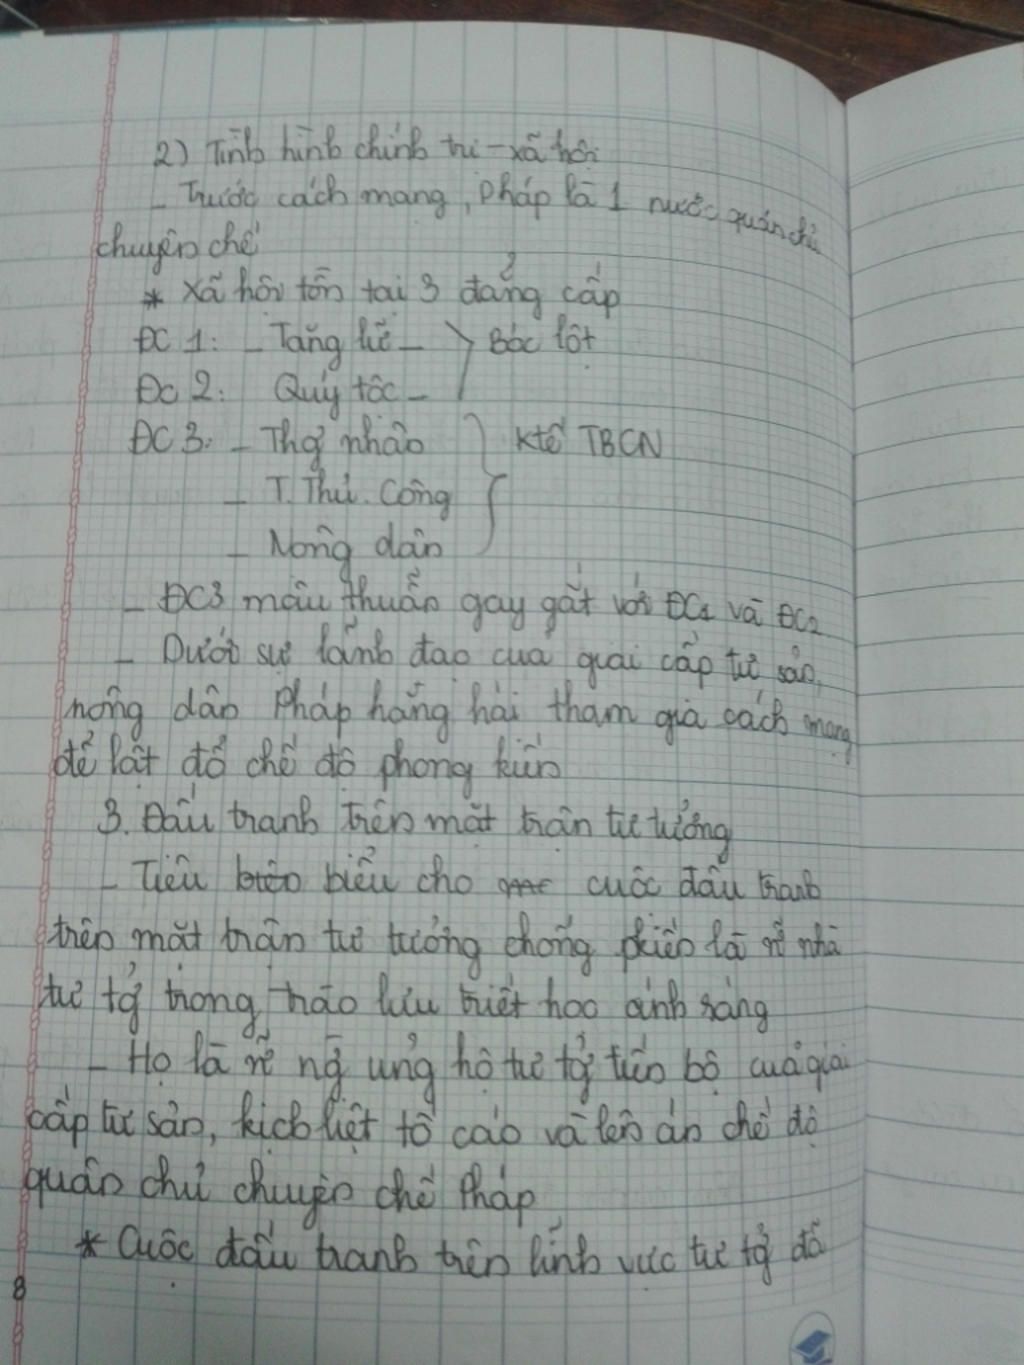 2) Tình hình chính trị - xã hội
- Trước cách mạng, Pháp là 1 nước quân chủ
chuyên chế
* Xã hội tồn tại 3 đẳng cấp
ĐC 1: - Tăng lữ - Bóc lột
ĐC 2: Quý tộc -
ĐC 3: - Thợ nhào Ktế TBCN
- T. Thủ. Công
- Nông dân
- ĐC3 mâu thuẫn gay gắt với ĐC1 và ĐC2
- Dưới sự lãnh đạo của giai cấp tư sản,
nông dân Pháp hăng hái tham gia cách mạng
để lật đổ chế độ phong kiến
3. Đấu tranh trên mặt trận tư tưởng
- Tiêu biểu cho cuộc đấu tranh
trên mặt trận tư tưởng chống pkiến là n~ nhà
tư tg̉ trong trào lưu triết học ánh sáng
- Họ là n~ ng̀ ủng hộ tư tg̉ tiến bộ của giai
cấp tư sản, kịch liệt tố cáo và lên án chế độ
quân chủ chuyên chế Pháp
* Cuộc đấu tranh trên lĩnh vực tư tg̉ đã
8